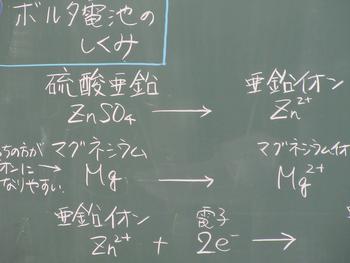 ボルタ電池の
しくみ
硫酸亜鉛 亜鉛イオン
ZnSO₄ → Zn²⁺
っちの方が マグネシウム マグネシウムイオ
オンに → Mg → Mg²⁺
なりやすい
亜鉛イオン 電子
Zn²⁺ + 2e⁻ →